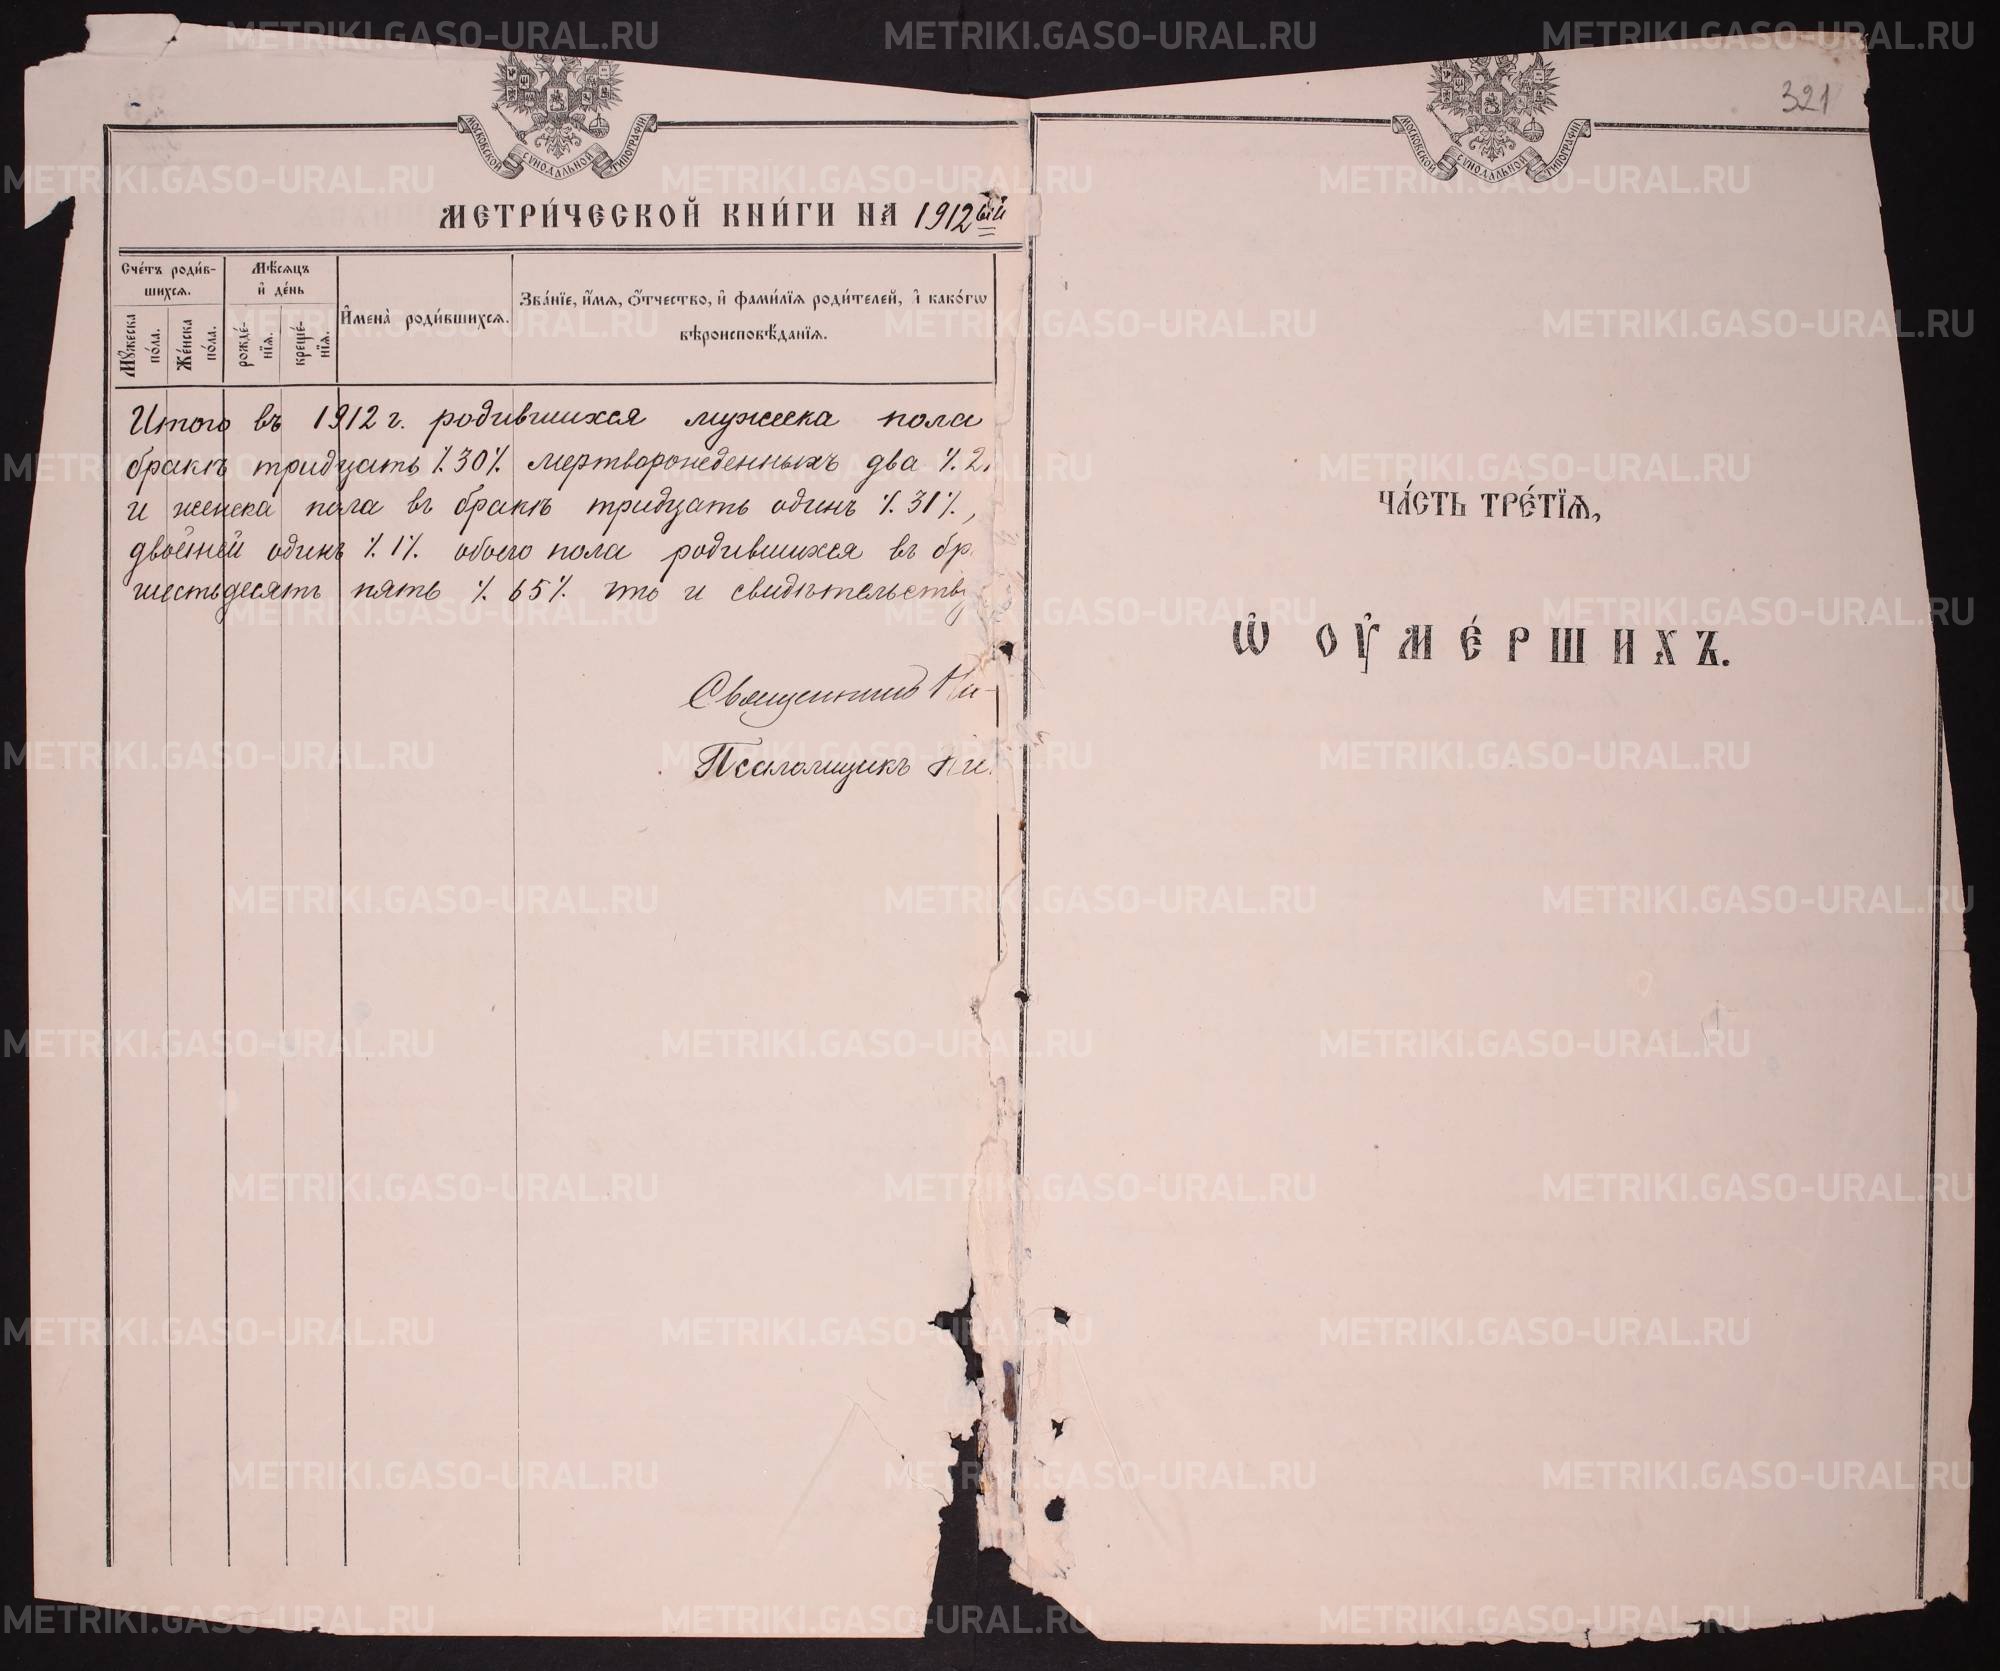 МОСКОВСКОЙ СѴНОДАЛЬНОЙ ТИПОГРАФІИ
МЕТРИ́ЧЕСКОЙ КНИ́ГИ НА 1912ый
Сче́тъ роди́в-
шихсѧ.
Мѣ́сѧцъ
и҆ де́нь
И҆мена̀ роди́вшихсѧ.
Зва́нїе, и҆́мѧ, ѻ҆́тчество, и҆ фами́лїѧ роди́телей, и҆ како́гѡ
вѣроисповѣ́данїѧ.
Мꙋ́жеска
по́ла.
Же́нска
по́ла.
рожде́-
нїѧ.
креще́-
нїѧ.
Итого въ 1912 г. родившихся мужеска пола
бракѣ тридцать ٪30٪ мертворожденныхъ два ٪2.
и женска пола въ бракѣ тридцать одинъ ٪31٪,
двойней одинъ ٪1٪ обоего пола родившихся въ бр
шестьдесятъ пять ٪65٪ что и свидѣтельству
Священникъ Ни-
Псаломщикъ Ни
321
МОСКОВСКОЙ СѴНОДАЛЬНОЙ ТИПОГРАФІИ
ЧА́СТЬ ТРЕ́ТЇѦ,
Ѡ҆ ОУ҆МЕ́РШИХЪ.
METRIKI.GASO-URAL.RU